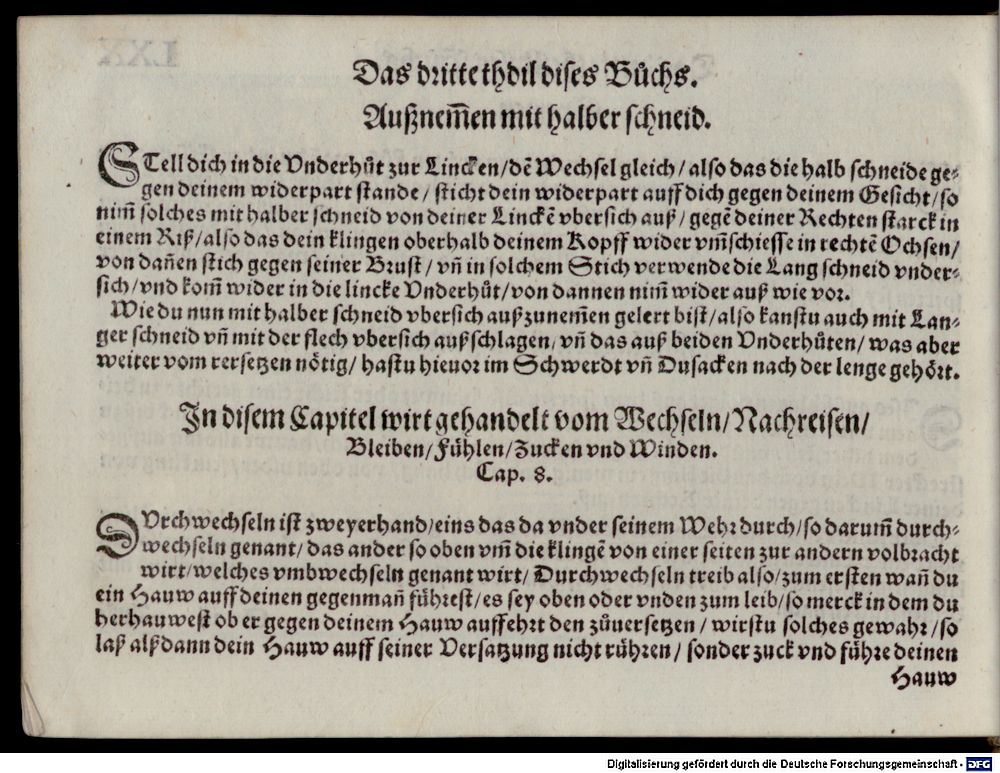 Das dritte thdil dises Bůchs.
Außnem̃en mit halber schneid.
STell dich in die Vnderhůt zur Lincken/dẽ Wechsel gleich/also das die halb schneide ge⸗
gen deinem widerpart stande/ sticht dein widerpart auff dich gegen deinem Gesicht/so
nim̃ solches mit halber schneid von deiner Linckẽ vbersich auß/ gegẽ deiner Rechten starck in
einem Riß/also das dein klingen oberhalb deinem Kopff wider vm̃schiesse in rechtẽ Ochsen/
von dañen stich gegen seiner Brust/ vñ in solchem Stich verwende die Lang schneid vnder⸗
sich/vnd kom̃ wider in die lincke Vnderhůt/von dannen nim̃ wider auß wie vor.
Wie du nun mit halber schneid vbersich außzunem̃en gelert bist/also kanstu auch mit Lan⸗
ger schneid vñ mit der flech vbersich außschlagen, vñ das auß beiden Vnderhůten/ was aber
weiter vom rersetzen nötig/ hastu hieuor im Schwerdt vñ Dusacken nach der lenge gehört.
In disem Capitel wirt gehandelt vom Wechseln/Nachreisen/
Bleiben/Fühlen/Zucken vnd Winden.
Cap. 8.
DVrchwechseln ist zweyerhand/eins das da vnder seinem Wehr durch/so darum̃ durch⸗
wechseln genant/das ander so oben vm̃ die klingẽ von einer seiten zur andern volbracht
wirt/welches vmbwechseln genant wirt/ Durchwechseln treib also/zum ersten wañ du
ein Hauw auff deinen gegenmañ führest/es sey oben oder vnden zum leib/so merck in dem du
herhauwest ob er gegen deinem Hauw auffehrt den zůuersetzen/ wirstu solches gewahr/so
laß alßdann dein Hauw auff seiner Versatzung nicht rühren/ sonder zuck vnd führe deinen
Hauw
Digitalisierung gefördert durch die Deutsche Forschungsgemeinschaft - DFG